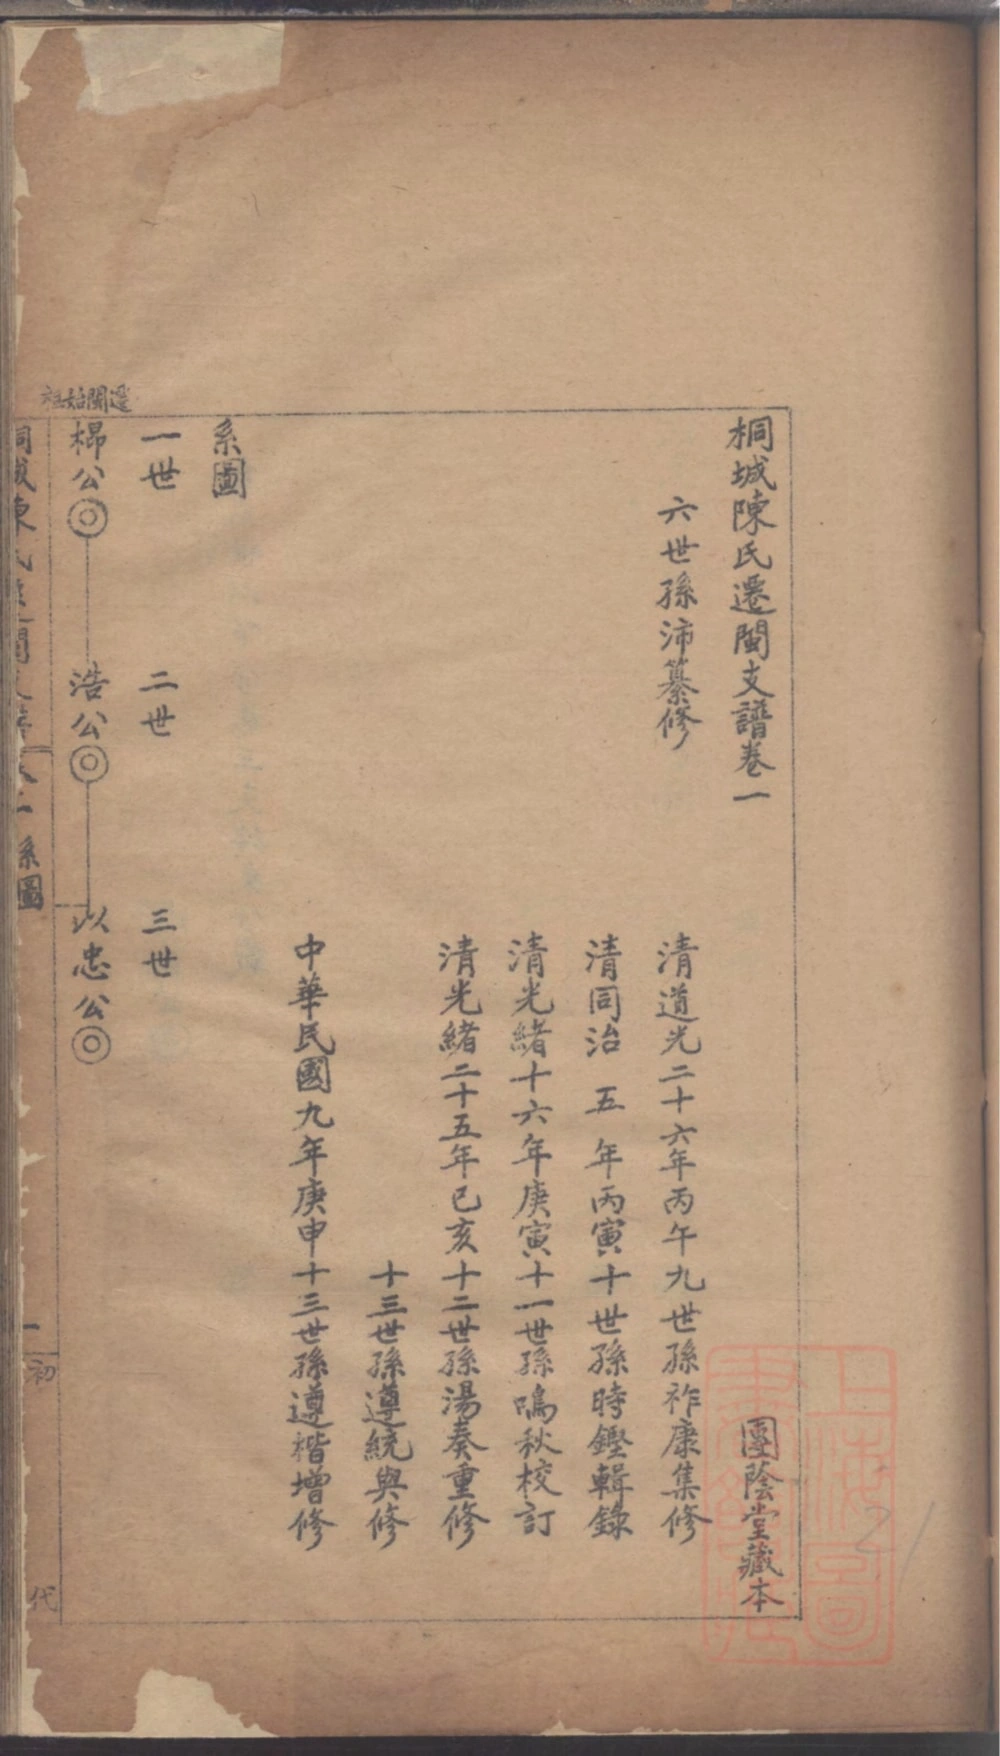 桐城陳氏遷閩支譜卷一
團陰堂藏本
六世孫沛纂修
清道光二十六年丙午九世孫祚康集修
清同治 五 年丙寅十世孫時鏗輯錄
清光緒十六年庚寅十一世孫鳴秋校訂
清光緒二十五年己亥十二世孫湯奏重修
十三世孫遵統與修
中華民國九年庚申十三世孫遵楷增修
系圖
一世 二世 三世
遷閩始祖
浩公 以忠公
系圖
一
初
代